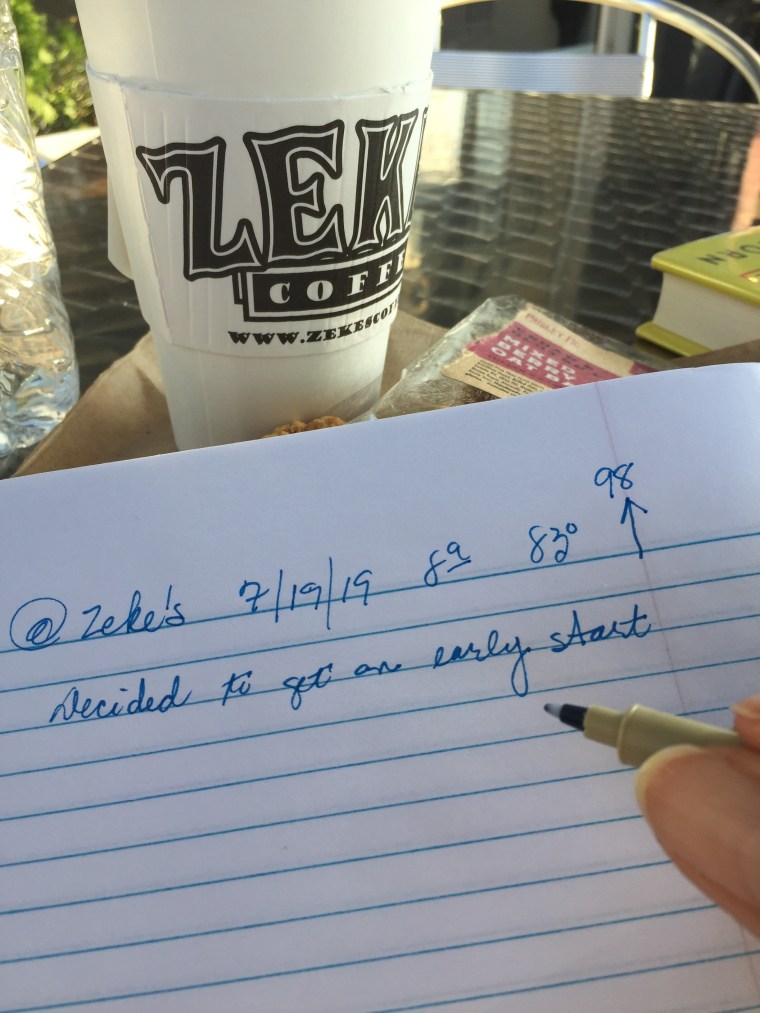 ZEK
COFF
WWW.ZEKESCOF
MIXED
BERRY
OAT B
98
@ Zeke's 7/19/19 8a 83°
Decided to get an early start